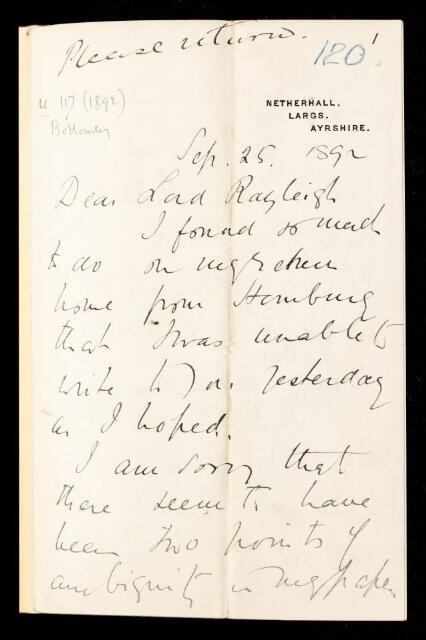 Please return.
120
1
u 117 (1892)
Bottomley
NETHERHALL.
LARGS.
AYRSHIRE.
Sep. 25. 1892
Dear Lord Rayleigh
I found so much
to do on my return
home from Homburg
that I was unable to
write to you yesterday
as I hoped.
I am sorry that
there seem to have
been two points of
ambiguity in my paper